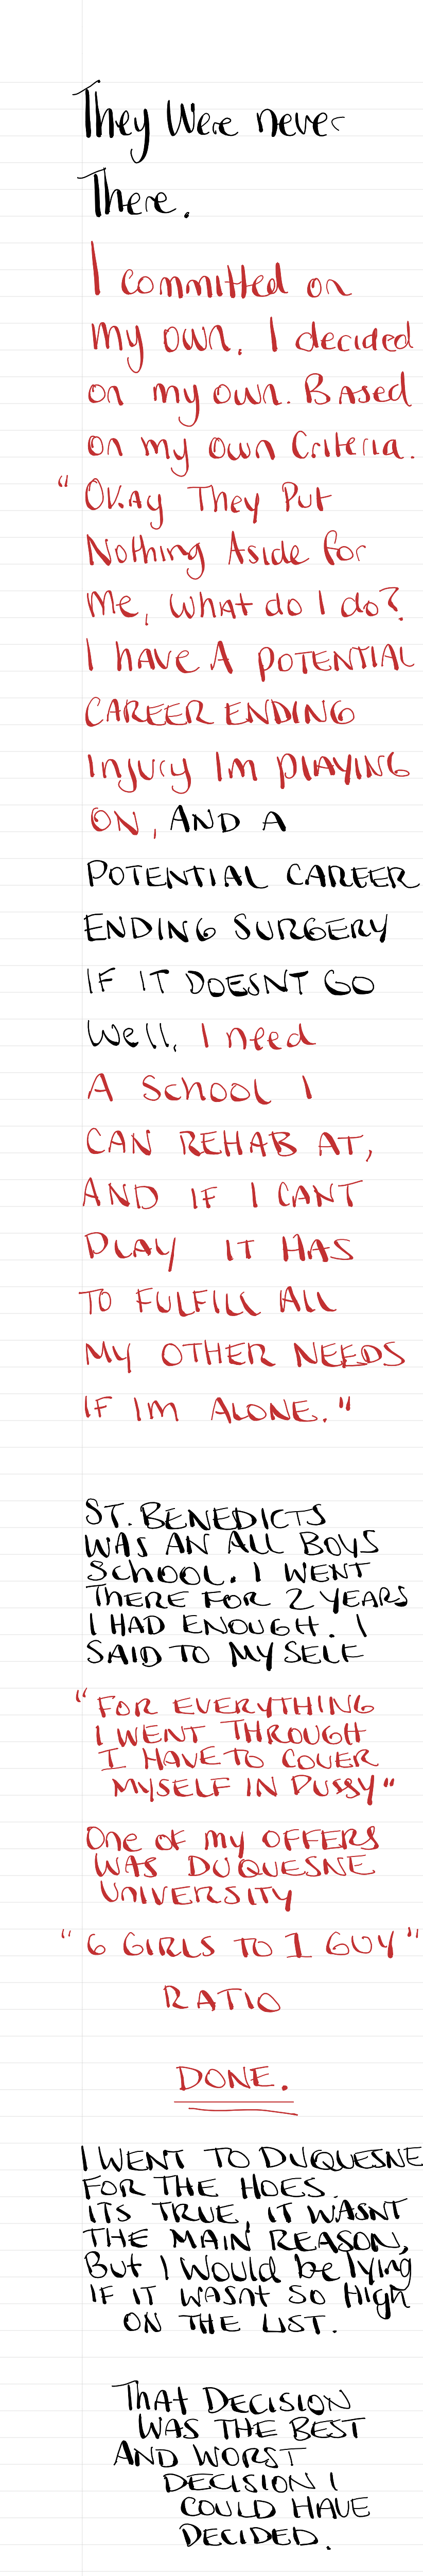 They Were never
There.
I committed on
my own. I decided
on my own. Based
on my own Criteria.
"Okay They Put
Nothing Aside for
Me, What do I do?
I have A POTENTIAL
CAREER ENDING
Injury Im PLAYING
ON, AND A
POTENTIAL CAREER
ENDING SURGERY
IF IT DOESNT GO
Well. I need
A School I
CAN REHAB AT,
AND IF I CANT
PLAY IT HAS
TO FULFILL All
MY OTHER NEEDS
IF IM ALONE."
ST. BENEDICTS
WAS AN ALL BOYS
SCHOOL. I WENT
THERE FOR 2 YEARS
I HAD ENOUGH. I
SAID TO MYSELF
"FOR EVERYTHING
I WENT THROUGH
I HAVE TO COVER
MYSELF IN PUSSY"
One of my OFFERS
WAS DUQUESNE
UNIVERSITY
"6 GIRLS TO 1 GUY"
RATIO
DONE.
I WENT TO DUQUESNE
FOR THE HOES.
ITS TRUE, IT WASNT
THE MAIN REASON,
But I Would be lying
IF IT WASNt SO HIgh
ON THE LIST.
THAt DECISION
WAS THE BEST
AND WORST
DECISION I
COULD HAVE
DECIDED.